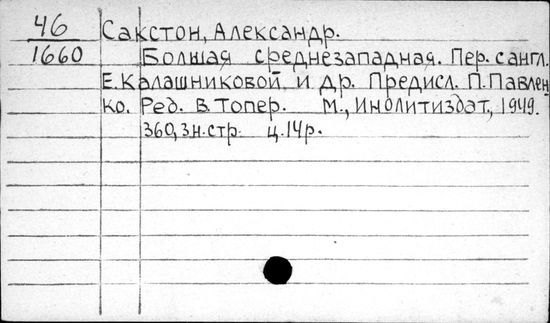 46 Сакстон, Александр.
1660 Болшая среднезападная. Пер. с англ.
Е. Калашниковой и др. Предисл. П. Павлен
ко. Ред. В. Топер. М., Инолитиздат, 1949.
360, 3 н. стр. ц. 14 р.